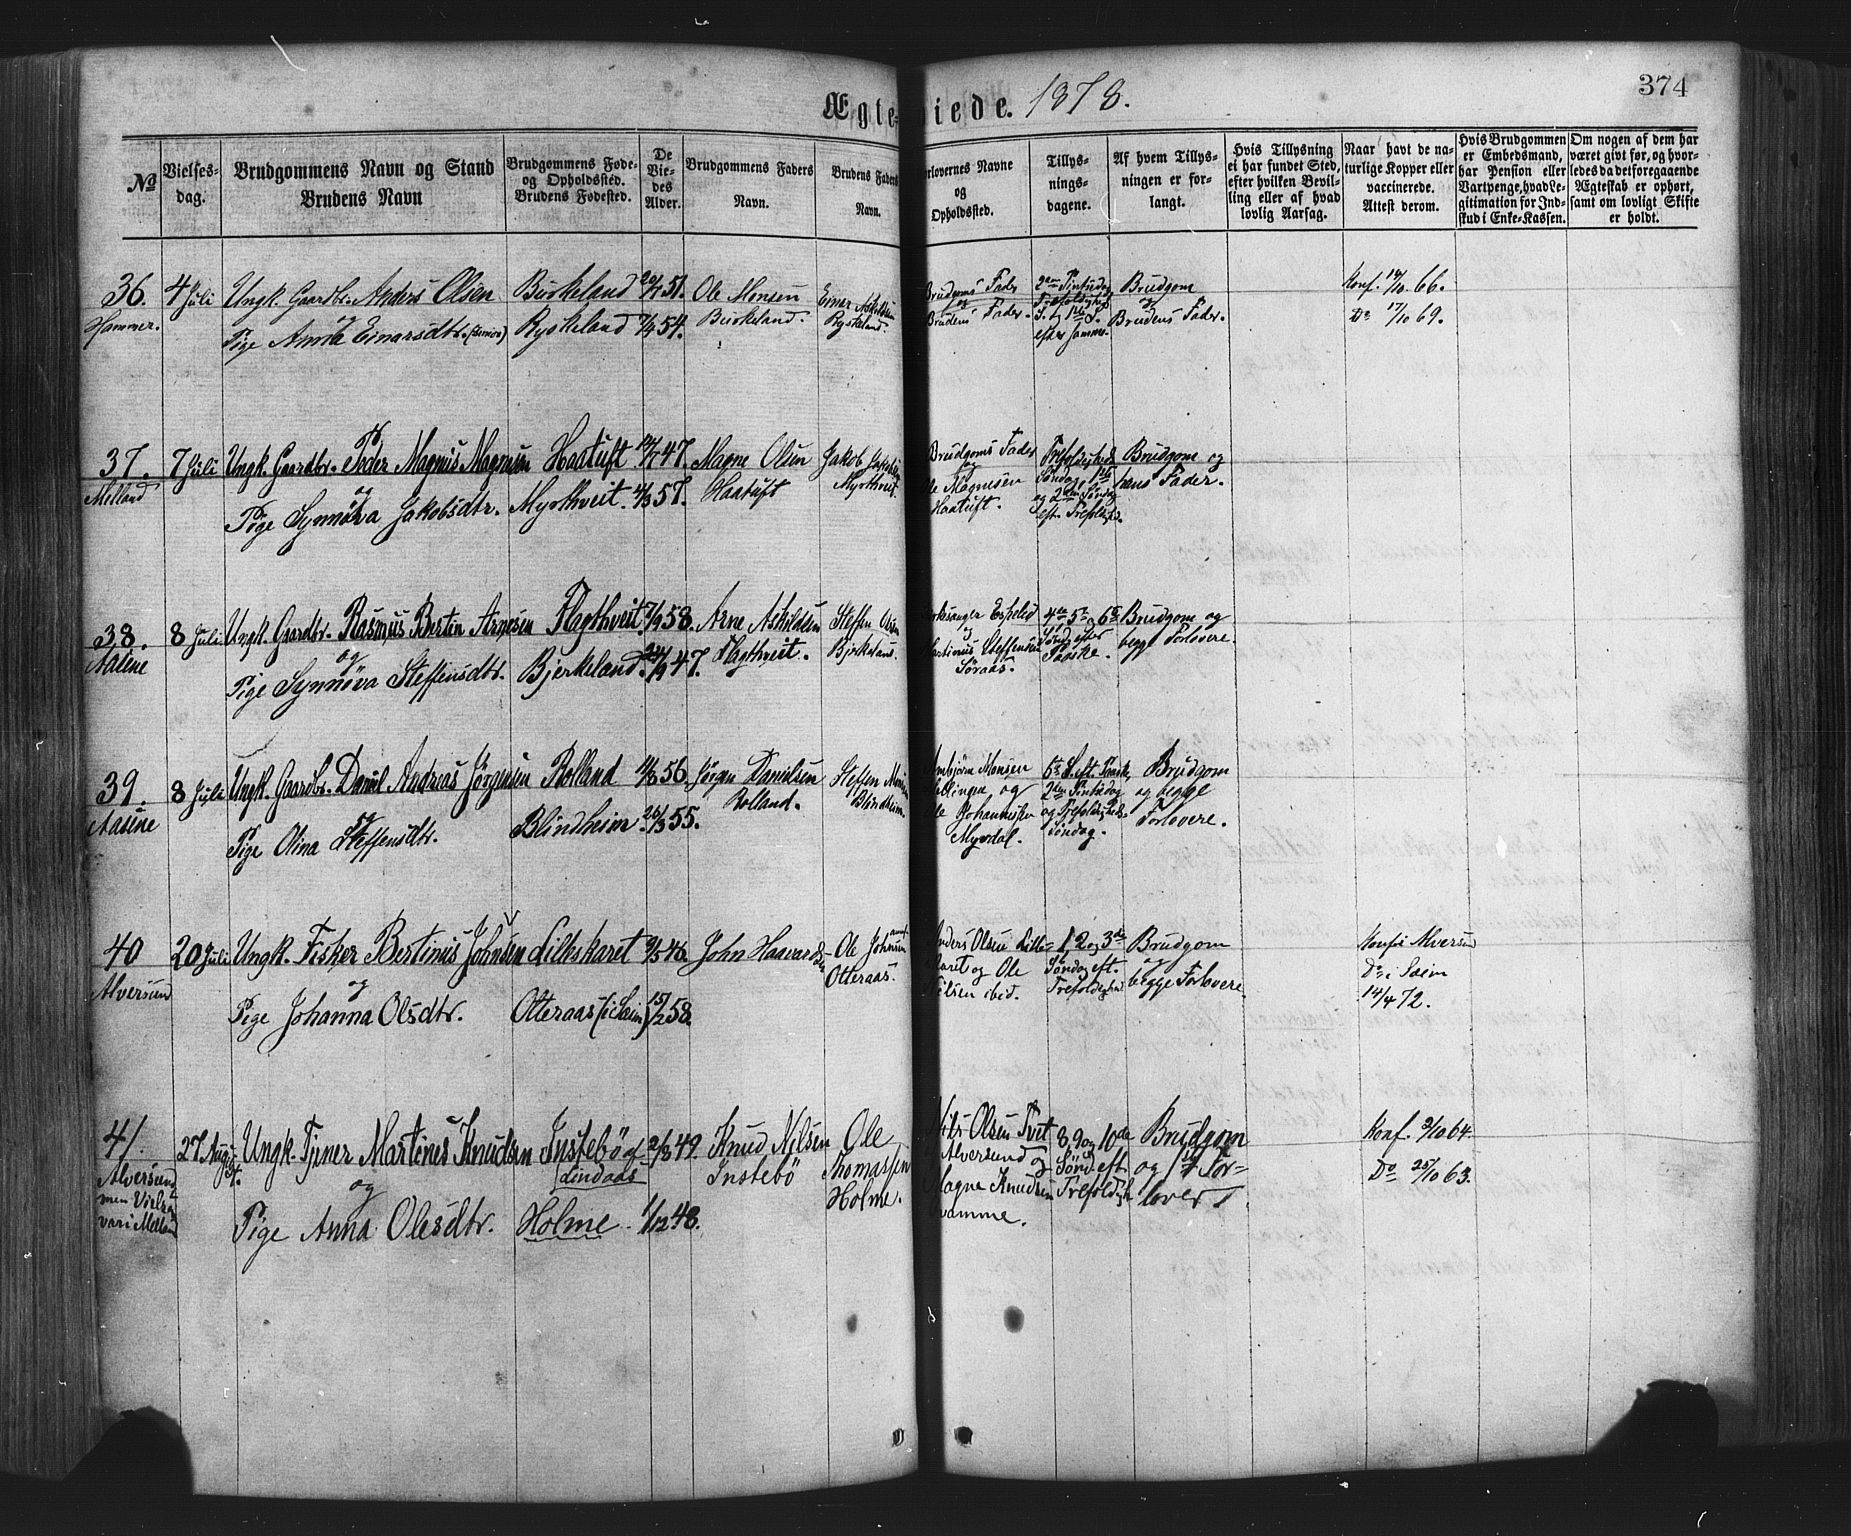 374
Ægteviede. 1878.
No
Vielses-
dag.
Brudgommens Navn og Stand
Brudens Navn
Brudgommens Føde-
og Opholdssted.
Brudens Fødested.
De
Vie-
des
Alder.
Brudgommens Faders
Navn.
Brudens Faders
Navn.
orlovernes Navne
og
Opholdssted.
Tillys-
nings-
dagene.
Af hvem Tillys-
ningen er for-
langt.
Hvis Tillysning
ei har fundet Sted,
efter hvilken Bevil-
ling eller af hvad
lovlig Aarsag.
Naar havt de na-
turlige Kopper eller
vaccinerede.
Attest derom.
Hvis Brudgommen
er Embedsmand,
har Pension eller
Vartpenge, hvad Le-
gitimation for Ind-
skud i Enke-Kassen.
Om nogen af dem har
været givt før, og hvor-
ledes da det foregaaende
Ægteskab er ophørt,
samt om lovligt Skifte
er holdt.
36.
Hammer.
4 Juli
Ungk. Gaardbr. Anders Olsen
og
Pige Anna Einarsdtr.
Birkeland
Ryskeland
20/7 51.
7/4 54.
Ole Monsen
Birkeland.
Einar Askildsen
Ryskeland.
Brudgoms Fader
og
Brudens Fader.
2den Pintsedag
Trefoldigheds
S. og 1ste S.
efter samme.
Brudgom
og
Brudens Fader.
Konf. 14/10 66.
Do 17/10 69.
37.
Melland
7 Juli
Ungk. Gaardbr. Peder Magnus Magnesen
og
Pige Synnøva Jakobsdtr.
Haatuft
Myrthveit.
14/7 47.
4/3 57.
Magne Olsen
Haatuft
Jakob
Myrthveit.
Brudgoms Fader
og
Ole Magnesen
Haatuft.
Trefoldigheds
Søndag, 1ste
og 2den Søndag
eft. Trefoldigh.
Brudgom og
hans Fader.
38.
Aasene
8 Juli
Ungk. Gaardbr. Rasmus Bertin Arnesen
og
Pige Synnøva Steffensdtr.
Flagthveit.
Bjerkeland.
7/9 58.
24/9 47.
Arne Askildsen
Flagthveit.
Steffen Olsen
Bjerkeland.
Kirkesanger Espelid
og
Martinus Steffensen
Søraas.
4de 5te og 6te
Sønd. efter
Paaske.
Brudgom og
begge Forlovere.
39.
Aasene
8 Juli
Ungk. Gaardbr. Daniel Andreas Jørgensen
og
Pige Olina Steffensdtr.
Rolland
Blindheim.
11/3 56.
26/3 55.
Jørgen Danielsen
Rolland.
Steffen Monsen
Blindheim.
Arnbjørn Monsen
og
Ole Johannessen
Myrdal.
6te S. eft. Paaske,
2den Pintsedag
og Trefoldigheds-
Søndag.
Brudgom
og begge
Forlovere.
40
Alversund
20 Juli
Ungk. Fisker Bertinus Johnsen
og
Pige Johanna Olsdtr.
Lilleskaret
Otteraas (i Seim)
9/5 46.
15/2 58.
John Haavardsen
Ole Johnsen
Otteraas.
Anders Olsen Lille-
skaret og Ole
Nilsen ibid.
1, 2 og 3de
Søndag eft.
Trefoldighed
Brudgom
og
begge Forlovere.
Konf. i Alversund
Do i Seim
14/4 72.
41.
Alversund,
men Vielsen
var i Melland
27 August.
Ungk. Tjener Martines Knudsen
og
Pige Anna Olesdtr.
Instebö af
Lindaas
Holme.
2/3 49.
1/12 48.
Knud Nilsen
Instebö
Ole
Thomassen
Holme.
Nils Olsen Tvet
Alversund og
Magne Knudsen
Kvamme.
8, 9 og 10de
Sønd. eft.
Trefoldigh.
Brudgom
og 1ste For-
lover
Konf. 2/10 64.
Do 25/10 63.